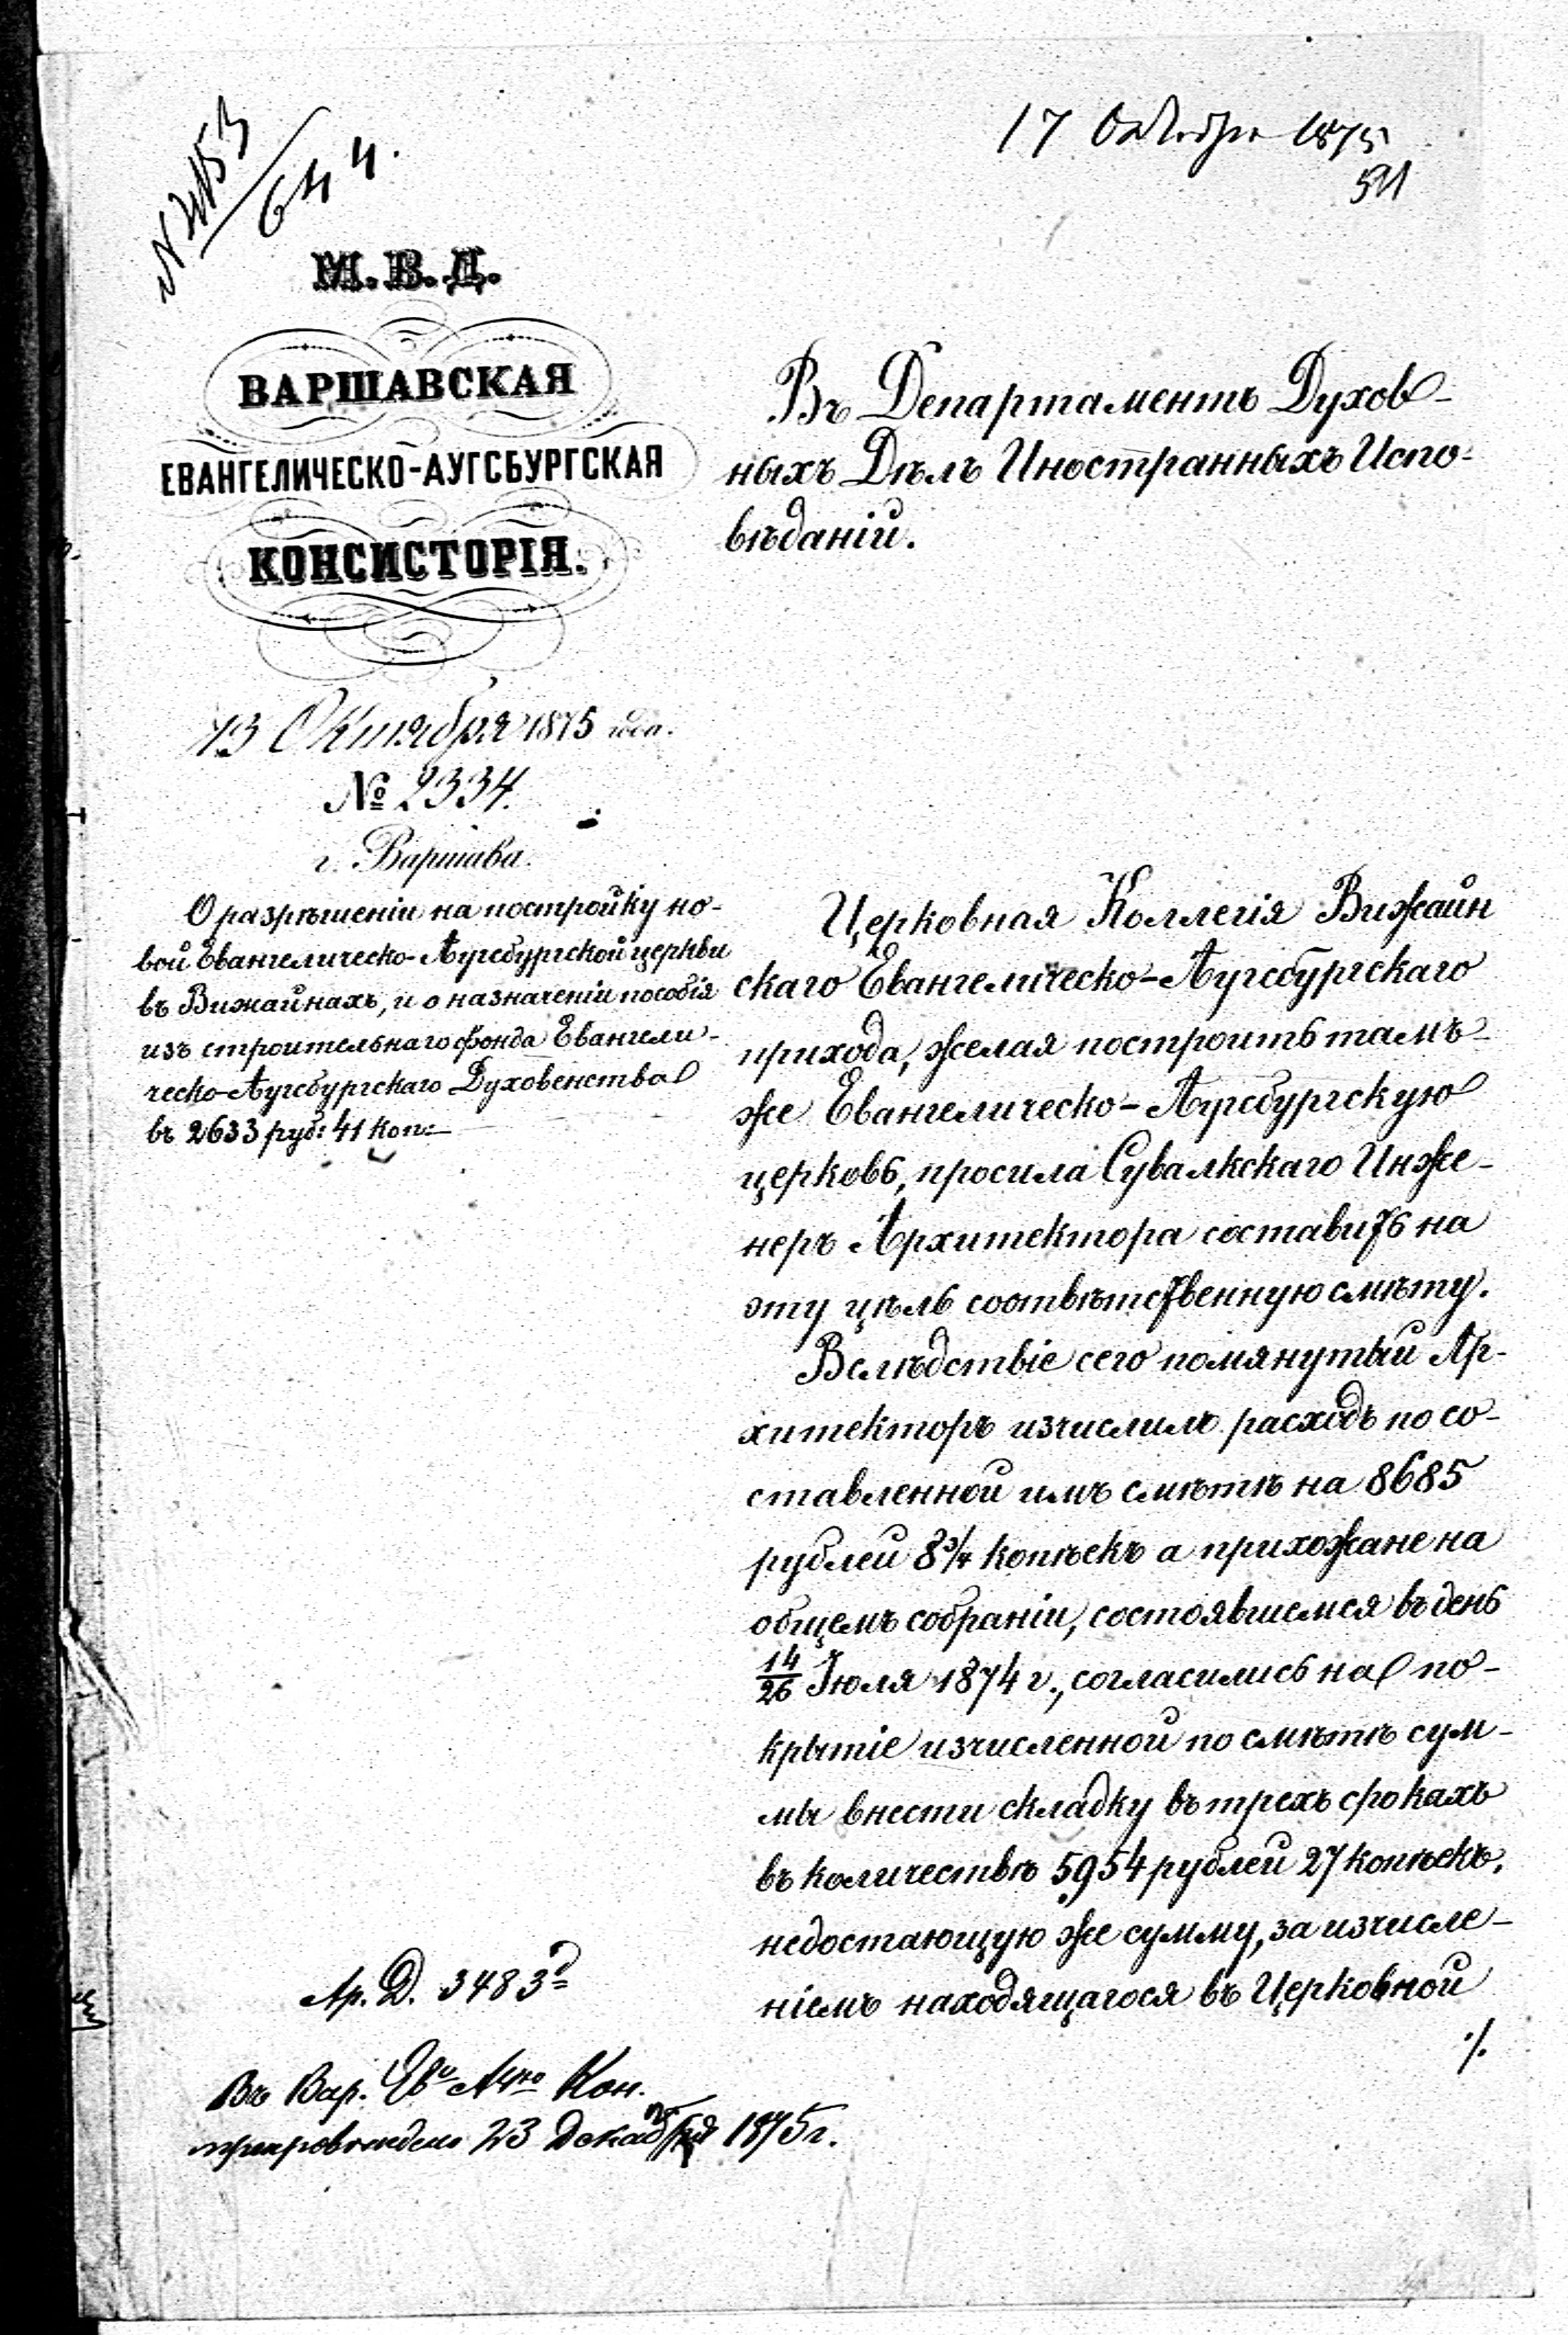 17 Октября 1875
644.
М. В. Д.
ВАРШАВСКАЯ
ЕВАНГЕЛИЧЕСКО-АУГСБУРГСКАЯ
КОНСИСТОРІЯ.
13 Октября 1875 года.
№ 2334.
г. Варшава.
О разрѣшеніи на постройку но-
вой Евангелическо-Аугсбургской церкви
въ Вижайнахъ, и о назначеніи пособія
изъ строительнаго фонда Евангели-
ческо-Аугсбургскаго Духовенства
въ 2633 руб: 41 коп:
Въ Департаментъ Духов-
ныхъ Дѣлъ Иностранныхъ Испо-
вѣданій.
Церковная Коллегія Вижайн
скаго Евангелическо-Аугсбургскаго
прихода, желая построить тамъ-
же Евангелическо-Аугсбургскую
церковь, просила Сувалкскаго Инже-
неръ Архитектора составить на
эту цѣль соотвѣтственную смѣту.
Вслѣдствіе сего помянутый Ар-
хитекторъ изчислилъ расходъ по со-
ставленной имъ смѣтѣ на 8685
рублей 8 3/4 копѣекъ а прихожане на
общемъ собраніи, состоявшемся въ день
14/26 Іюля 1874 г., согласились на по-
крытіе изчисленной по смѣтѣ сум-
мы внести складку въ трехъ срокахъ
въ количествѣ 5954 рублей 27 копѣекъ,
недостающую же сумму, за изчисле-
ніемъ находящагося въ Церковной
./.
Ар. Д. 3483
Въ Вар. Ев. Кон.
препровождено 23 Декабря 1875 г.